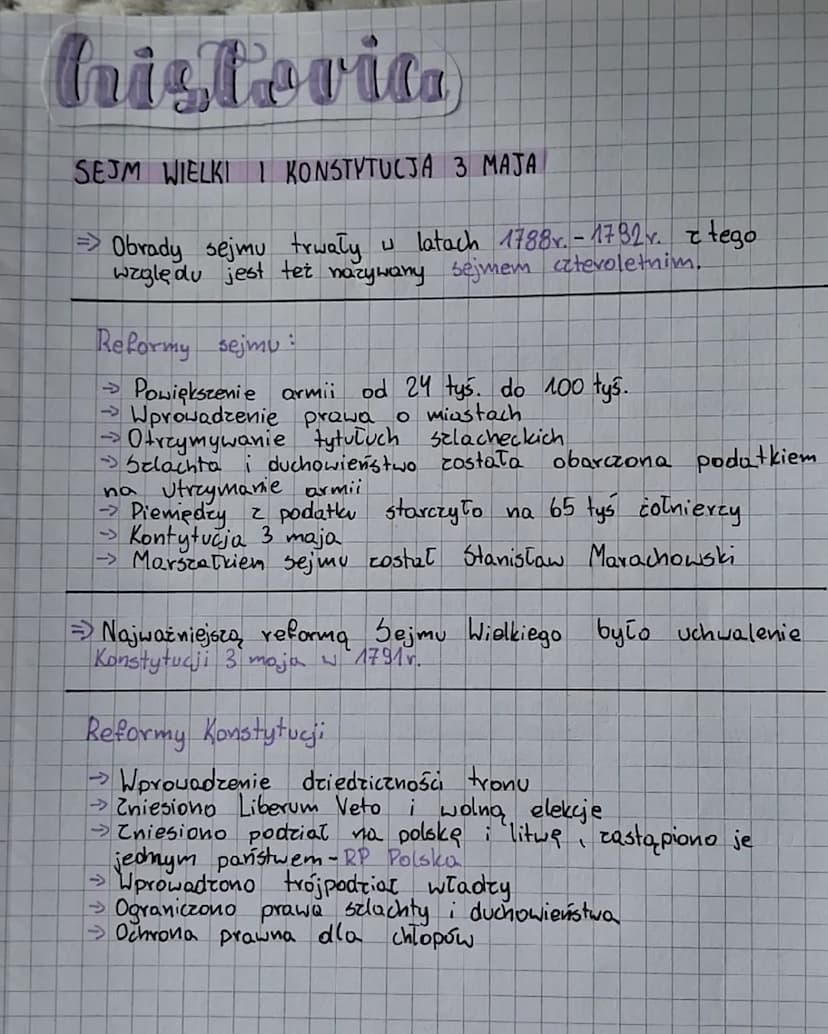 Historia
SEJM WIELKI I KONSTYTUCJA 3 MAJA
⇒ Obrady sejmu trwały w latach 1788r. - 1792r. z tego
względu jest też nazywany sejmem czteroletnim.
Reformy sejmu:
→ Powiększenie armii od 24 tyś. do 100 tyś.
→ Wprowadzenie prawa o miastach
→ Otrzymywanie tytułuch szlacheckich
→ Szlachta i duchowieństwo została obarczona podatkiem
na utrzymanie armii
→ Piemiędzy z podatku starczyło na 65 tyś żołnierzy
→ Kontytucja 3 maja
→ Marszałkiem sejmu został Stanisław Marachowski
⇒ Najważniejszą reformą Sejmu Wielkiego było uchwalenie
Konstytucji 3 maja w 1791r.
Reformy Konstytucji
→ Wprowadzenie dziedziczności tronu
→ Zniesiono Liberum Veto i wolną elekcje
→ Zniesiono podział na polskę i litwę, zastąpiono je
jednym państwem - RP Polska
→ Wprowadzono trójpodział władzy
→ Ograniczono prawa szlachty i duchowieństwa
→ Ochrona prawna dla chłopów